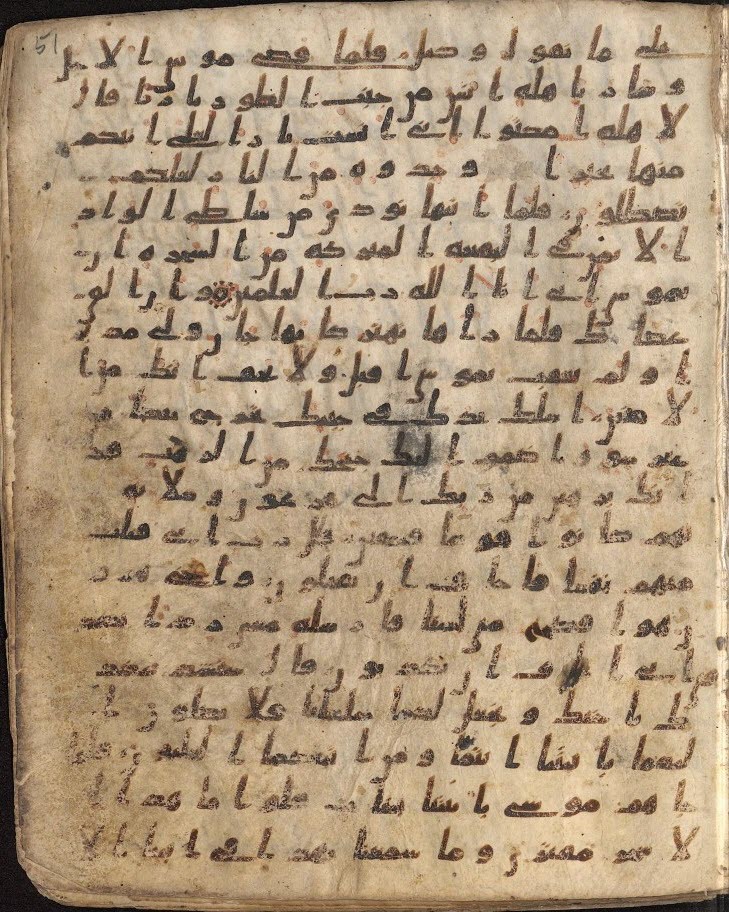 51
على ما نقول وكيل فلما قضى موسى الاجل
وسار باهله انس من جنب الطور نارا قال
لاهله امكثوا انى انست نارا لعلى اتيكم
منها بخبر او جذوه من النار لعلكم
تصطلون فلما اتيها نودى من شاطى الواد
الايمن فى البقعه المبركه من الشجره ان
يموسى انى انا الله رب العلمين وان الق
عصاك فلما راها تهتز كانها جان ولى مدبر
ا ولم يعقب يموسى اقبل ولا تخف انك من ا
لامنين اسلك يدك فى جيبك تخرج بيضا من
غير سو واضمم اليك جنحك من الرهب فذ
نك برهنن من ربك الى فرعون وملايه ا
نهم كانوا قوما فسقين قال رب انى قتلت
منهم نفسا فاخاف ان يقتلون واخى هر
ون هو افصح منى لسنا فارسله معى ردا يصد
قنى انى اخاف ان يكذبون قال سنشد عضد
ك باخيك ونجعل لكما سلطنا فلا يصلون ا
ليكما بايتنا انتما ومن اتبعكما الغلبون فلما
جاهم موسى بايتنا بينت قالوا ما هذا ا
لا سحر مفترى وما سمعنا بهذا فى ابائنا الا